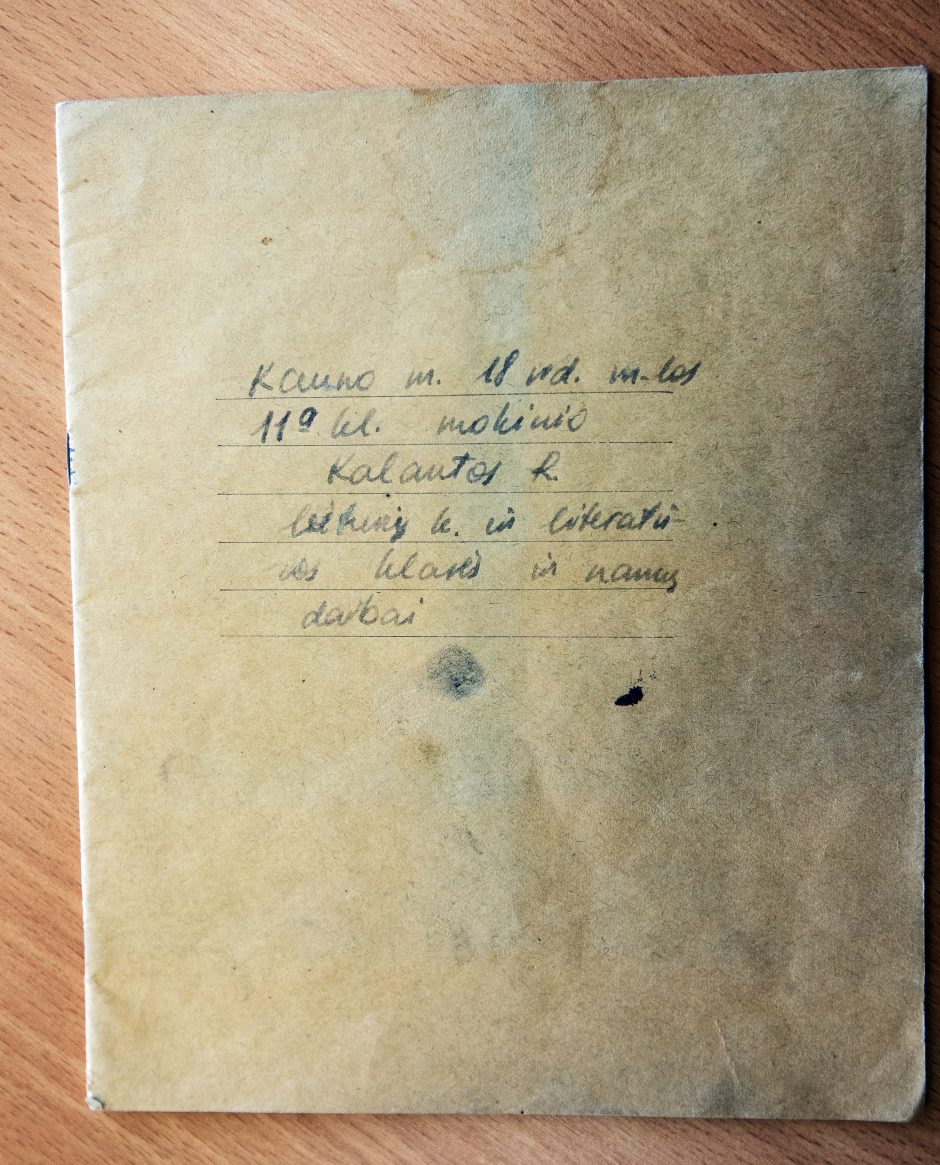 Kauno m. 18 vid. m-los
11ª kl. mokinio
Kalantos R.
lietuvių k. ir literatū-
ros klasės ir namų
darbai